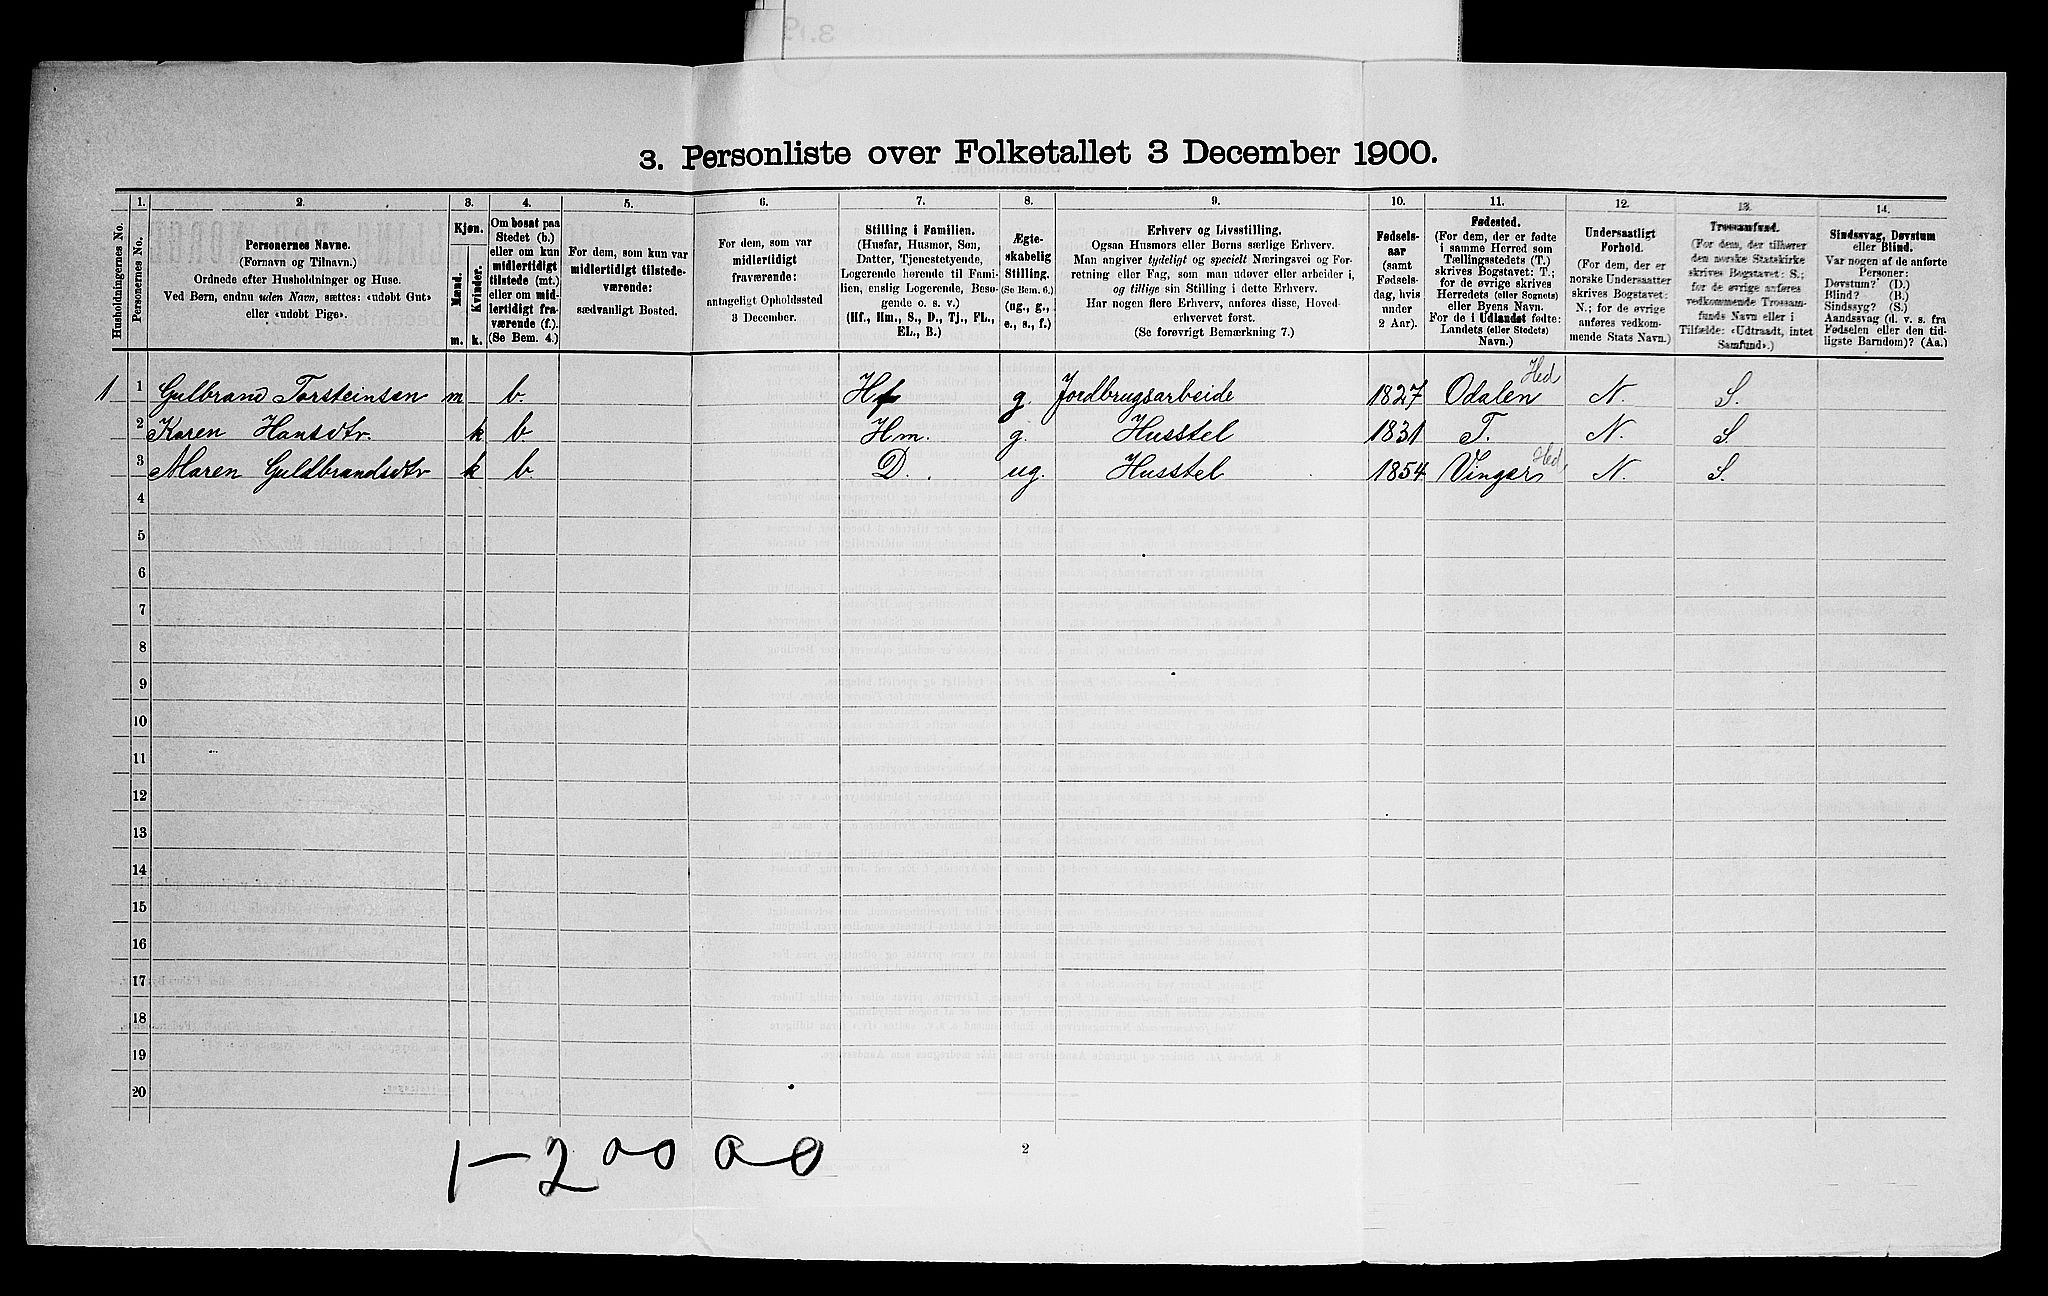 3. Personliste over Folketallet 3 December 1900.
1. 2. 3. 4. 5. 6. 7. 8. 9. 10. 11. 12. 13. 14.
Husholdningernes No.
Personernes No.
Personernes Navne.
(Fornavn og Tilnavn.)
Ordnede efter Husholdninger og Huse.
Ved Børn, endnu uden Navn, sættes: «udøbt Gut»
eller «udøbt Pige».
Kjøn.
Mænd. Kvinder.
m. k.
Om bosat paa
Stedet (b.)
eller om kun
midlertidigt
tilstede (mt.)
eller om mid-
lertidigt fra-
værende (f.)
(Se Bem. 4.)
For dem, som kun var
midlertidigt tilstede-
værende:
sædvanligt Bosted.
For dem, som var
midlertidigt
fraværende:
antageligt Opholdssted
3 December.
Stilling i Familien.
(Husfar, Husmor, Søn,
Datter, Tjenestetyende,
Logerende hørende til Fami-
lien, enslig Logerende, Besø-
gende o. s. v.)
(Hf., Hm., S., D., Tj., FL.,
EL., B.)
Ægte-
skabelig
Stilling.
(Se Bem. 6.)
(ug., g.,
e., s., f.)
Erhverv og Livsstilling.
Ogsaa Husmors eller Børns særlige Erhverv.
Man angiver tydeligt og specielt Næringsvei og For-
retning eller Fag, som man udøver eller arbeider i,
og tillige sin Stilling i dette Erhverv.
Har nogen flere Erhverv, anføres disse, Hoved-
erhvervet først.
(Se forøvrigt Bemærkning 7.)
Fødsels-
aar
(samt
Fødsels-
dag, hvis
under
2 Aar).
Fødested.
(For dem, der er fødte
i samme Herred som
Tællingsstedets (T.)
skrives Bogstavet: T.;
for de øvrige skrives
Herredets (eller Sognets)
eller Byens Navn.
For de i Udlandet fødte:
Landets (eller Stedets)
Navn.)
Undersaatligt
Forhold.
(For dem, der er
norske Undersaatter
skrives Bogstavet:
N.; for de øvrige
anføres vedkom-
mende Stats Navn.)
Trossamfund.
(For dem, der tilhører
den norske Statskirke
skrives Bogstavet: S.;
for de øvrige anføres
vedkommende Trossam-
funds Navn eller i
Tilfælde: «Udtraadt, intet
Samfund».)
Sindssvag, Døvstum
eller Blind.
Var nogen af de anførte
Personer:
Døvstum? (D.)
Blind? (B.)
Sindssyg? (S.)
Aandssvag (d. v. s. fra
Fødselen eller den tid-
ligste Barndom)? (Aa.)
1 1 Gulbrand Torsteinsen m b. Hf g. Jordbrugsarbeide 1827 Odalen Hed N. S.
2 Karen Hansdtr. k b Hm. g. Husstel 1831 T. N. S.
3 Maren Guldbrandsdtr k b. D. ug. Husstel 1854 Vinger Hed. N. S.
4
5
6
7
8
9
10
11
12
13
14
15
16
17
18
19
20
2
1-2 00 00 0-0